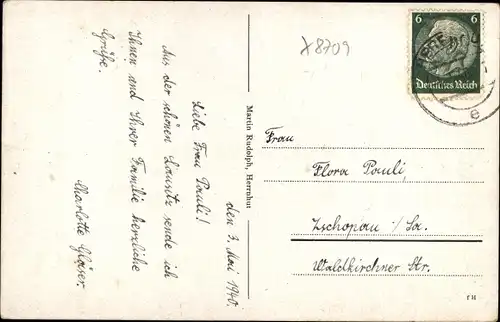 den 3. Mai 1940.
Liebe Frau Pauli!
Aus der schönen Lausitz sende ich
Ihnen und Ihrer Familie herzliche
Grüße.
Charlotte Gläser.
Martin Rudolph, Herrnhut
X8709
6 6
Deutsches Reich
e
Frau
Flora Pauli,
Zschopau i/Sa.
Waldkirchner Str.